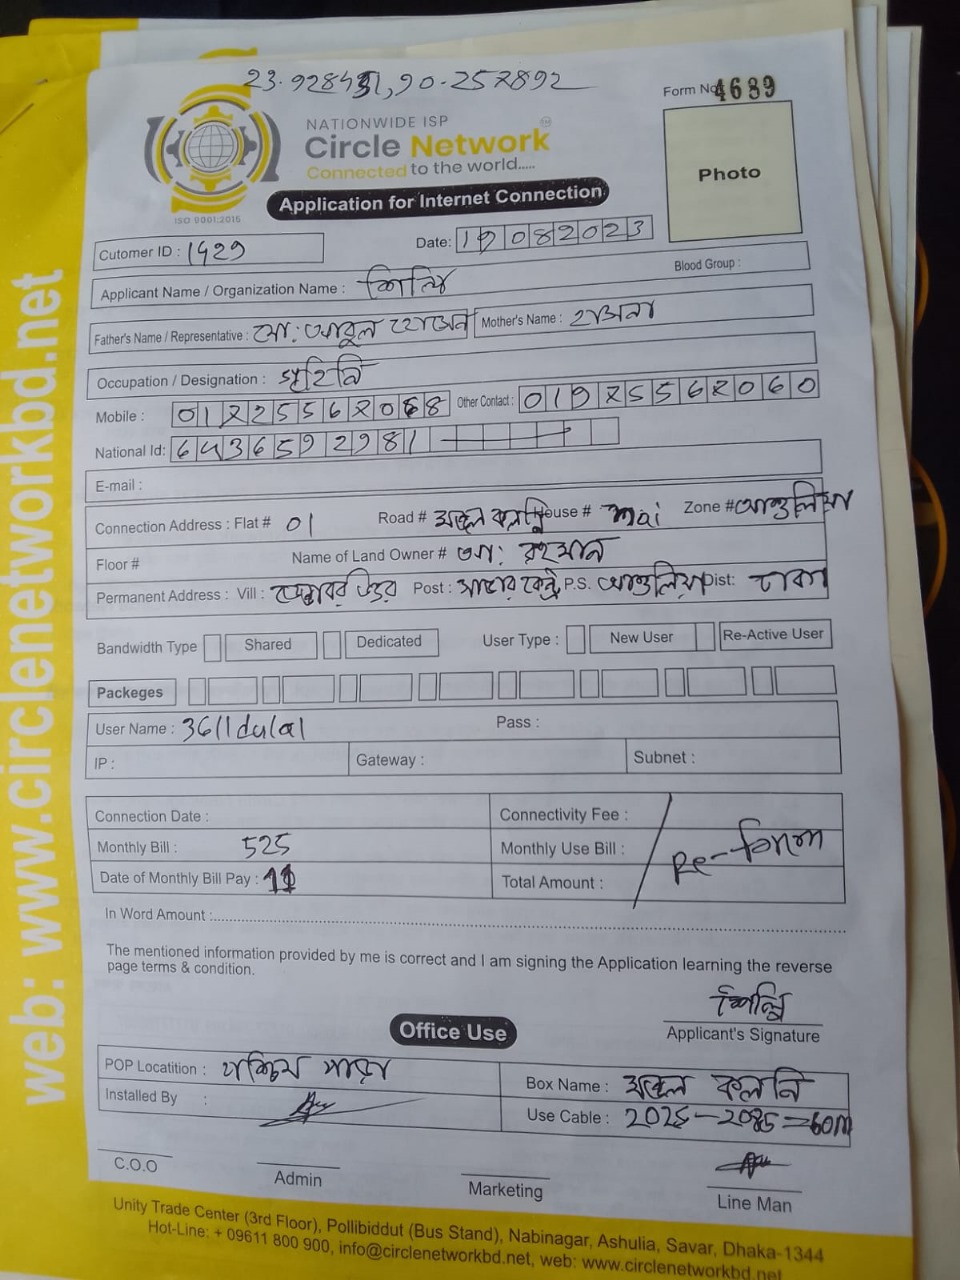 23.928451,90.257892
Form No 4689
NATIONWIDE ISP
Circle Network
Connected to the world.....
ISO 9001:2015
Photo
Application for Internet Connection
Cutomer ID : 1429
Date: 19082023
Blood Group :
Applicant Name / Organization Name : শিল্পি
Father's Name / Representative : মো: আবুল হোসেন Mother's Name : হাজেনা
Occupation / Designation : গৃহিনি
Mobile : 01725562068 Other Contact : 01975562060
National Id: 6436592981
E-mail :
Connection Address : Flat # 01 Road # মন্ডল কলনি House # Mai Zone # আশুলিয়া
Floor # Name of Land Owner # আ: রহমান
Permanent Address : Vill : Post : সাভার কেন্ট P.S. আশুলিয়া Dist: ঢাকা
Bandwidth Type Shared Dedicated User Type : New User Re-Active User
Packeges
User Name : 3611dulal Pass :
IP : Gateway : Subnet :
Connection Date : Connectivity Fee :
Monthly Bill : 525 Monthly Use Bill : Re-form
Date of Monthly Bill Pay : 11 Total Amount :
In Word Amount :
The mentioned information provided by me is correct and I am signing the Application learning the reverse
page terms & condition.
শিল্পি
Applicant's Signature
Office Use
POP Locatition : পশ্চিম পাড়া Box Name : মন্ডল কলনি
Installed By : Use Cable : 2025-2085=60m
C.O.O Admin Marketing Line Man
Unity Trade Center (3rd Floor), Pollibiddut (Bus Stand), Nabinagar, Ashulia, Savar, Dhaka-1344
Hot-Line: + 09611 800 900, info@circlenetworkbd.net, web: www.circlenetworkbd.net
web: www.circlenetworkbd.net